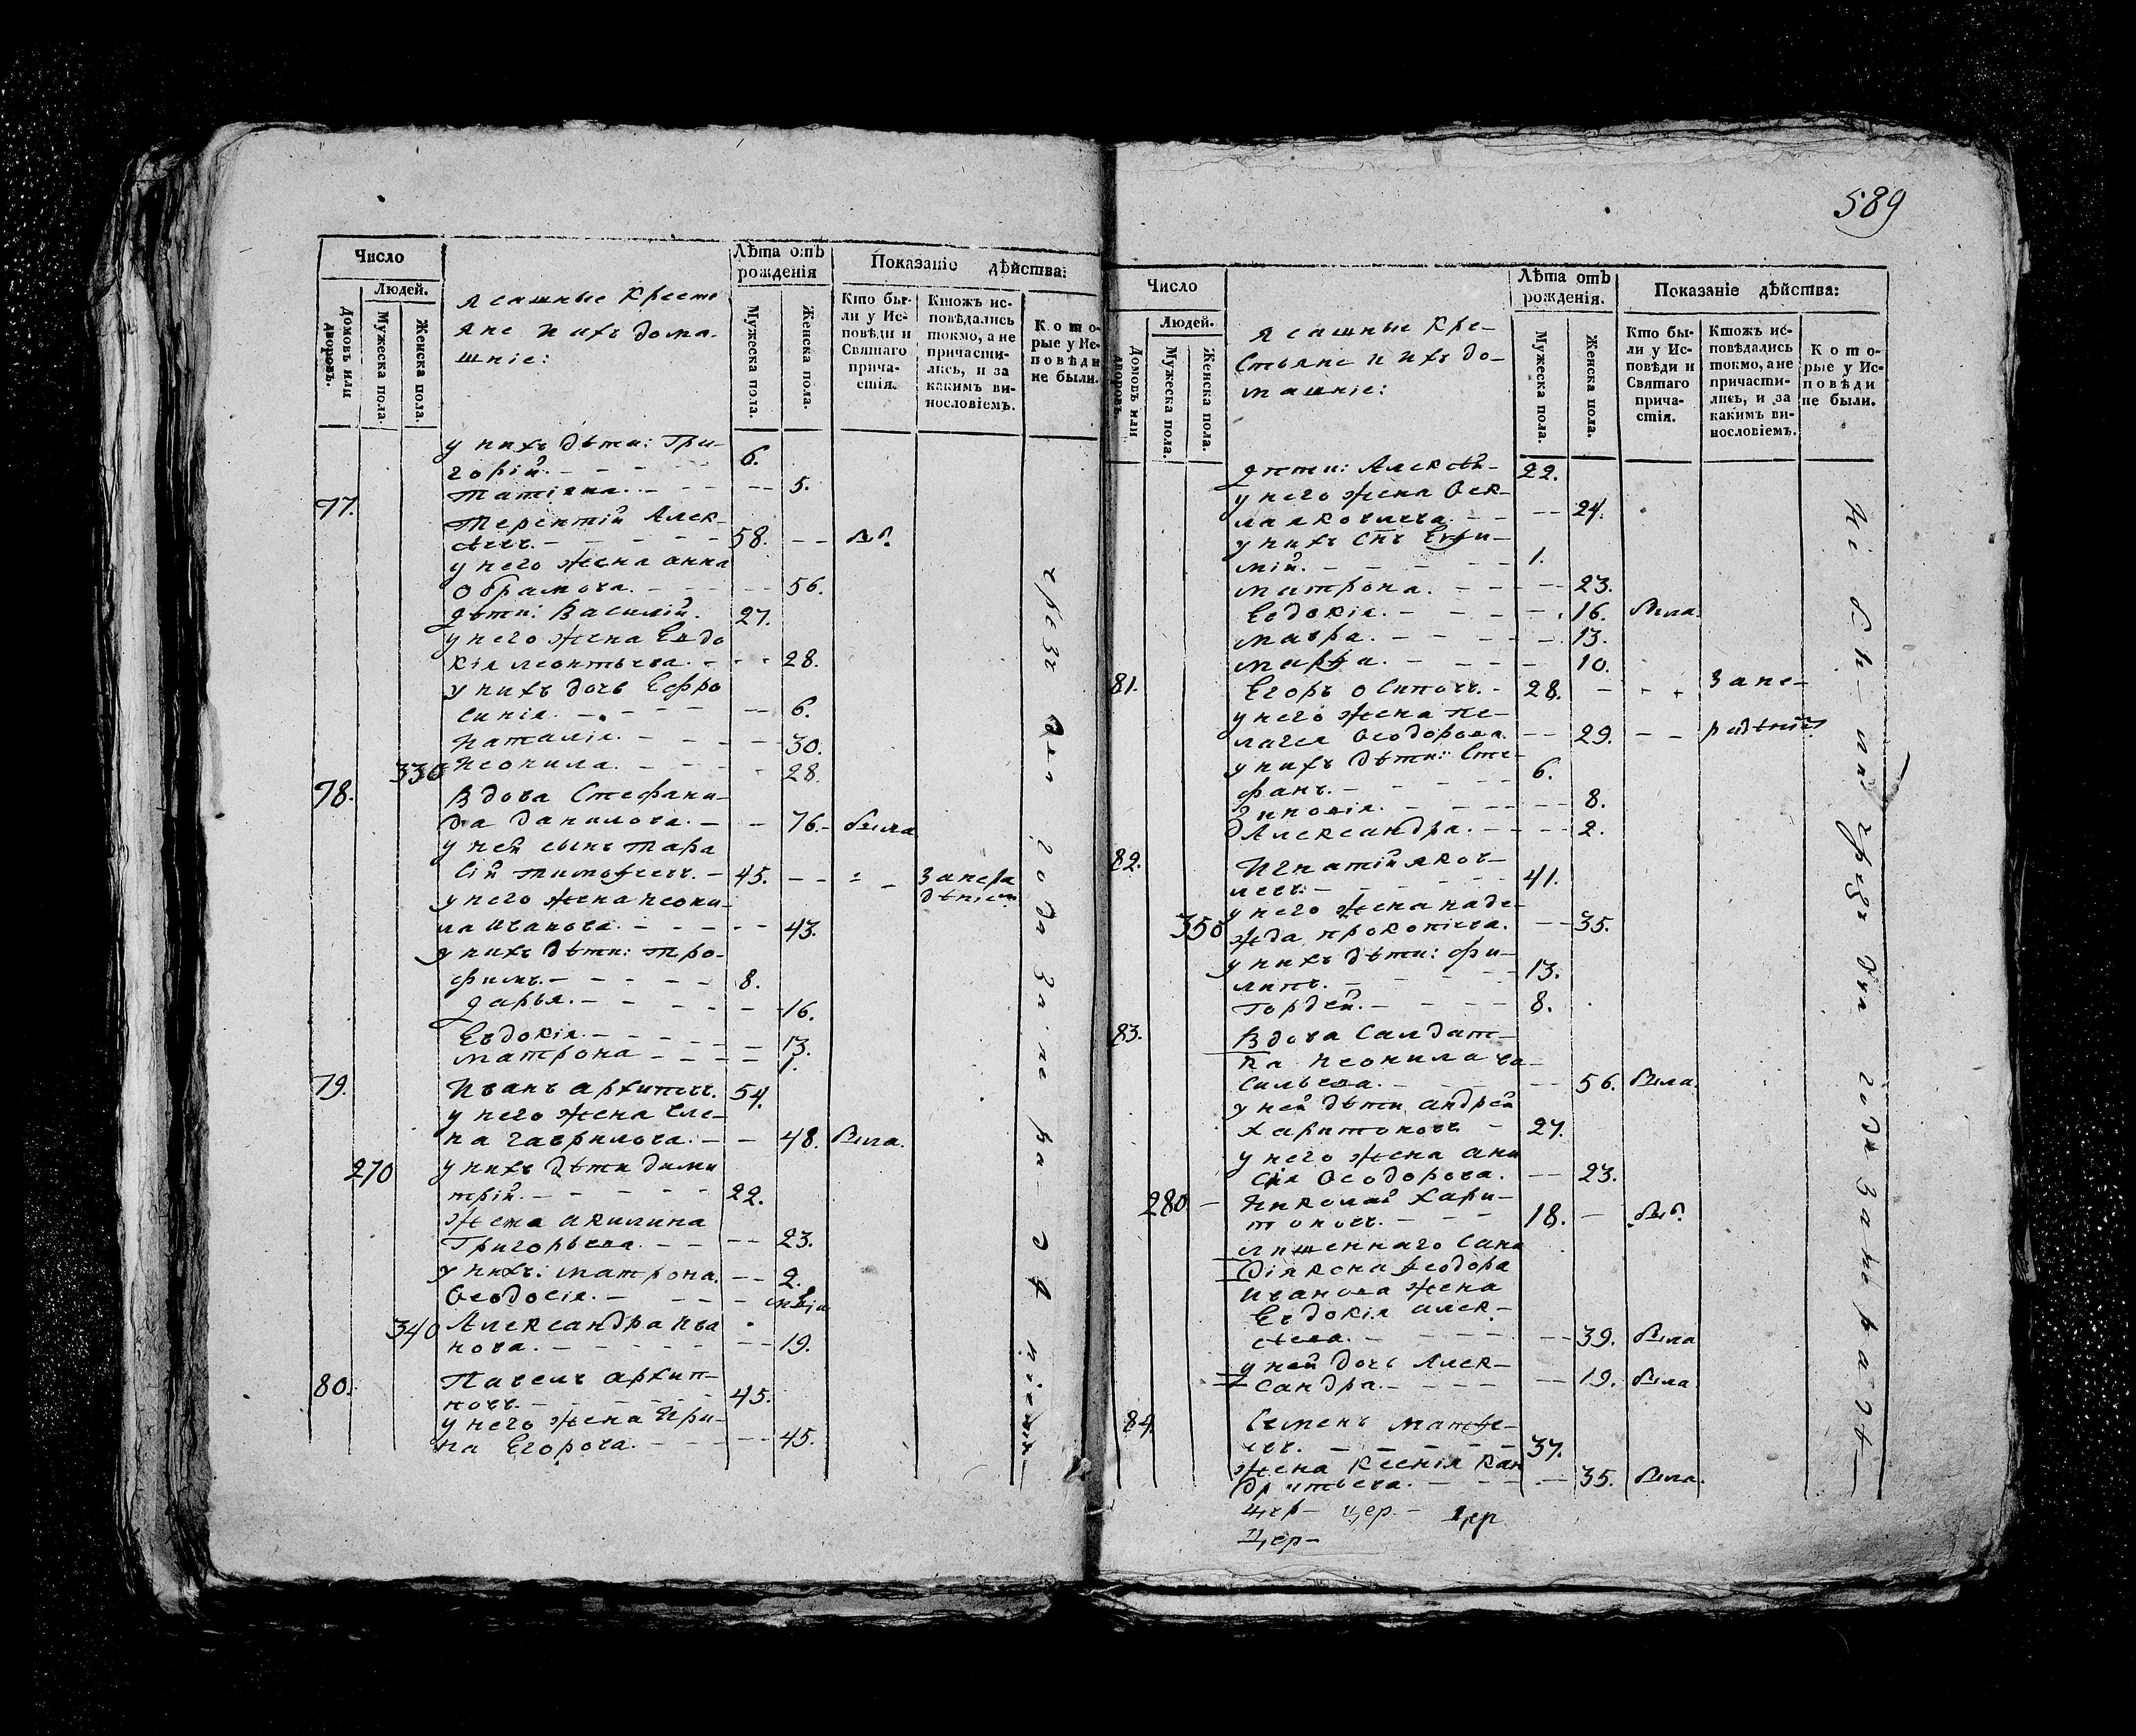 589
Число
Людей.
Домовъ или дворовъ.
Мужеска пола.
Женска пола.
Ясашные Кресть
яне и ихъ дома-
шніе:
Лѣта отъ
рожденія
Мужеска пола.
Женска пола.
Показаніе дѣйства:
Кто бы-
ли у Ис-
повѣди и
Святаго
прича-
стія.
Ктожъ ис-
повѣдались
токмо, а не
причасти-
лись, и за
какимъ ви-
нословіемъ.
Кото-
рые у Ис-
повѣди
не были.
у нихъ дѣти: Гри-
горій. 6.
Татіяна. 5.
77. Терентій Алек-
сѣевъ. 58.
у него жена анна
Обрамова. 56.
дѣти: Василій. 27.
у него жена Евдо
кія леонтьева. 28.
у нихъ дочь Ефро
синія. 6.
Наталія. 30.
330 Неонила. 28.
78. Вдова Стефани-
да данилова. 76. была
у ней сынъ Тара
сій тимофеевъ. 45. Занера
дѣніемъ
у него жена неони-
ла иванова. 43.
у нихъ дѣти: Тро-
фимъ. 8.
дарья. 16.
Евдокія. 13.
матрона 1.
79. Иванъ архиповъ. 54.
у него жена еле-
на гаврилова. 48. Была.
270 у нихъ дѣти дими
трій. 22.
Жена акилина
Григорьева. 23.
у нихъ: матрона. 2.
Ѳеодосія.
340 Александра ива
нова. 19.
80. Павелъ архип-
повъ. 45.
у него жена Ири-
на Егорова. 45.
чрезъ два года За не ра-дѣніемъ
Число
Людей.
Домовъ или дворовъ.
Мужеска пола.
Женска пола.
Ясашные Кре-
стьяне и ихъ до-
машніе:
Лѣта отъ
рожденія.
Мужеска пола.
Женска пола.
Показаніе дѣйства:
Кто бы-
ли у Ис-
повѣди и
Святаго
прича-
стія.
Ктожъ ис-
повѣдались
токмо, а не
причасти-
лись, и за
какимъ ви-
нословіемъ.
Кото-
рые у Ис-
повѣди
не были.
дѣти: Алексѣй 22.
у него жена Ѳек-
ла яковлева. 24.
у нихъ снъ Ефи-
мій. 1.
матрона. 23.
Евдокія. 16. была.
мавра. 13.
марфа. 10.
81. Егоръ осиповъ. 28. Зане-
у него жена пе-
лагея Ѳеодорова. 29. радѣніемъ
у нихъ дѣти: Сте-
фанъ. 6.
Зиновія. 8.
Александра. 2.
82. Игнатій яков-
левъ. 41.
у него жена наде-
350 жда прокопіева. 35.
у нихъ дѣти: фи-
липъ. 13.
гордей. 8.
83. Вдова Салдат-
ка неонила ва-
сильева. 56. Была.
у ней дѣти андрей
харитоновъ 27.
у него жена ани
сія Ѳеодорова. 23.
280 Николай хари-
тоновъ. 18.
лишеннаго сана
діякона феодора
иванова жена
Евдокія алек-
сѣева. 39. была
у ней дочь Алек-
сандра. 19. была
84. Семенъ матфе-
евъ. 37.
жена ксенія кан
дратьева. 35. была.
Цер- цер- Цер
Цер-
чрезъ два года За не радѣ-